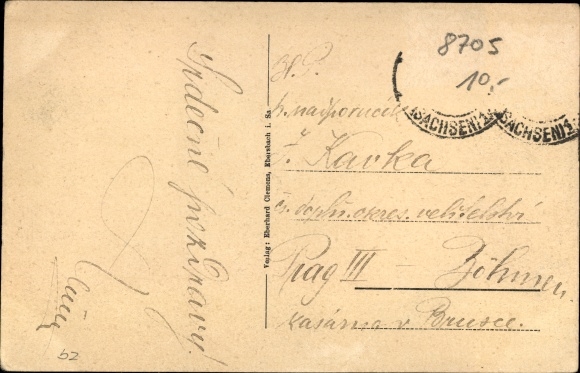 Srdečné pozdravy!
Verlag: Eberhard Clemens, Ebersbach i. Sa
8705
10.-
(SACHSEN)
(SACHSEN)
H. P.
p. nadporučík
F. Kavka
čs. doplň. okres. velitelství
Prag III — Böhmen.
Kasárna v Brusce.
62